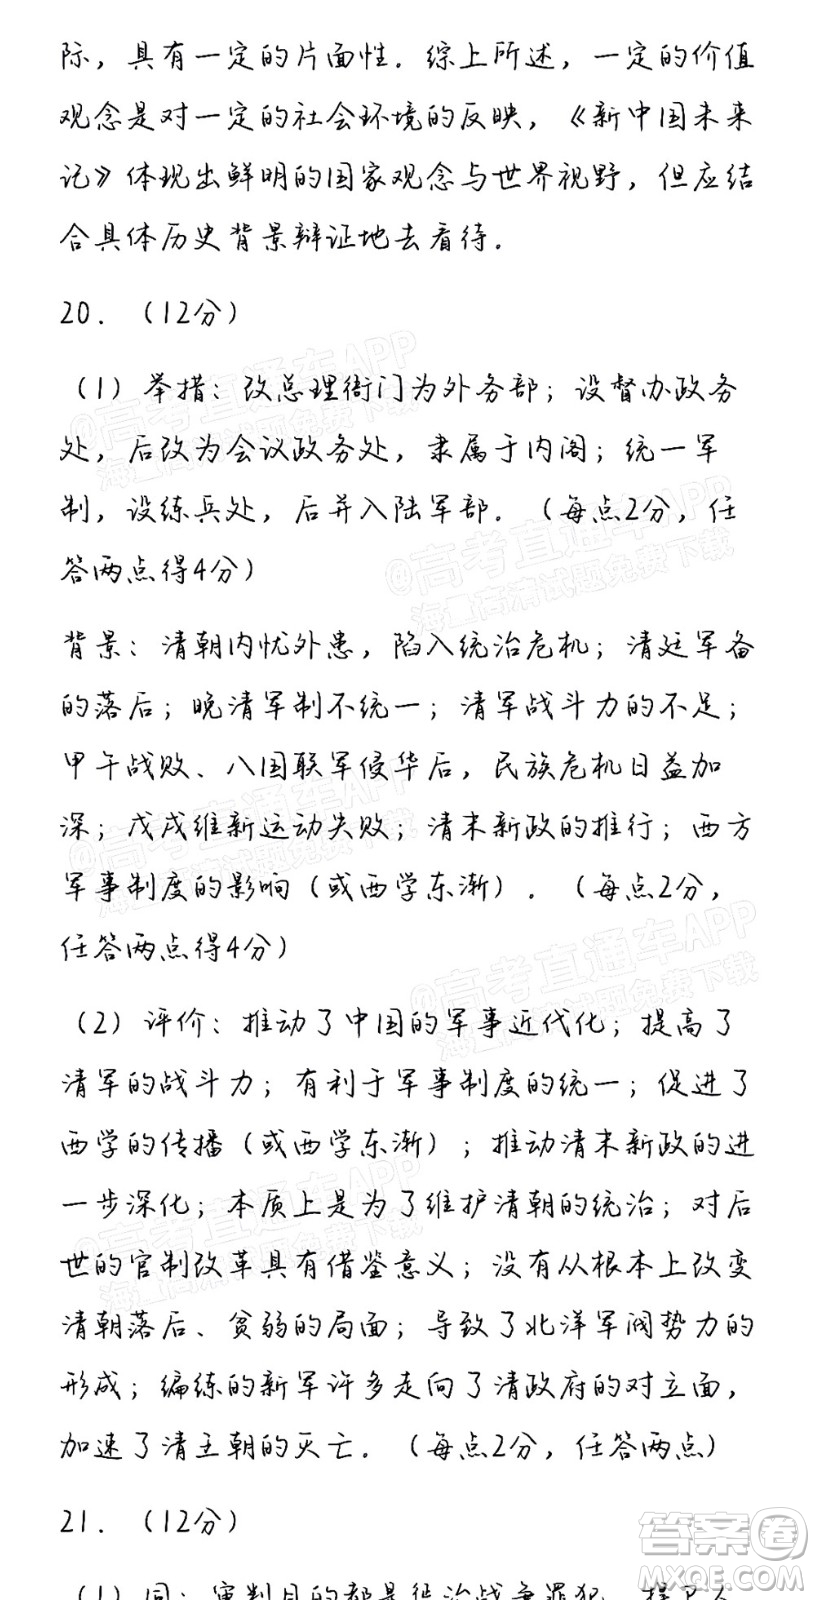 际，具有一定的片面性．综上所述，一定的价值
观念是对一定的社会环境的反映，《新中国未来
记》体现出鲜明的国家观念与世界视野，但应结
合具体历史背景辩证地去看待．
20．（12分）
（1）举措：改总理衙门为外务部；设督办政务
处，后改为会议政务处，隶属于内阁；统一军
制，设练兵处，后并入陆军部．（每点2分，任
答两点得4分）
背景：清朝内忧外患，陷入统治危机；清廷军备
的落后；晚清军制不统一；清军战斗力的不足；
甲午战败、八国联军侵华后，民族危机日益加
深；戊戌维新运动失败；清末新政的推行；西方
军事制度的影响（或西学东渐）．（每点2分，
任答两点得4分）
（2）评价：推动了中国的军事近代化；提高了
清军的战斗力；有利于军事制度的统一；促进了
西学的传播（或西学东渐）；推动清末新政的进
一步深化；本质上是为了维护清朝的统治；对后
世的官制改革具有借鉴意义；没有从根本上改变
清朝落后、贫弱的局面；导致了北洋军阀势力的
形成；编练的新军许多走向了清政府的对立面，
加速了清王朝的灭亡．（每点2分，任答两点）
21．（12分）
（1）同：审判目的都是惩治战争罪犯，捍卫人
@高考直通车APP
海量高清试题免费下载
@高考直通车APP
海量高清试题免费下载
@高考直通车APP
海量高清试题免费下载
@高考直通车APP
海量高清试题免费下载
@高考直通车APP
海量高清试题免费下载
答案圈
MXQE.COM